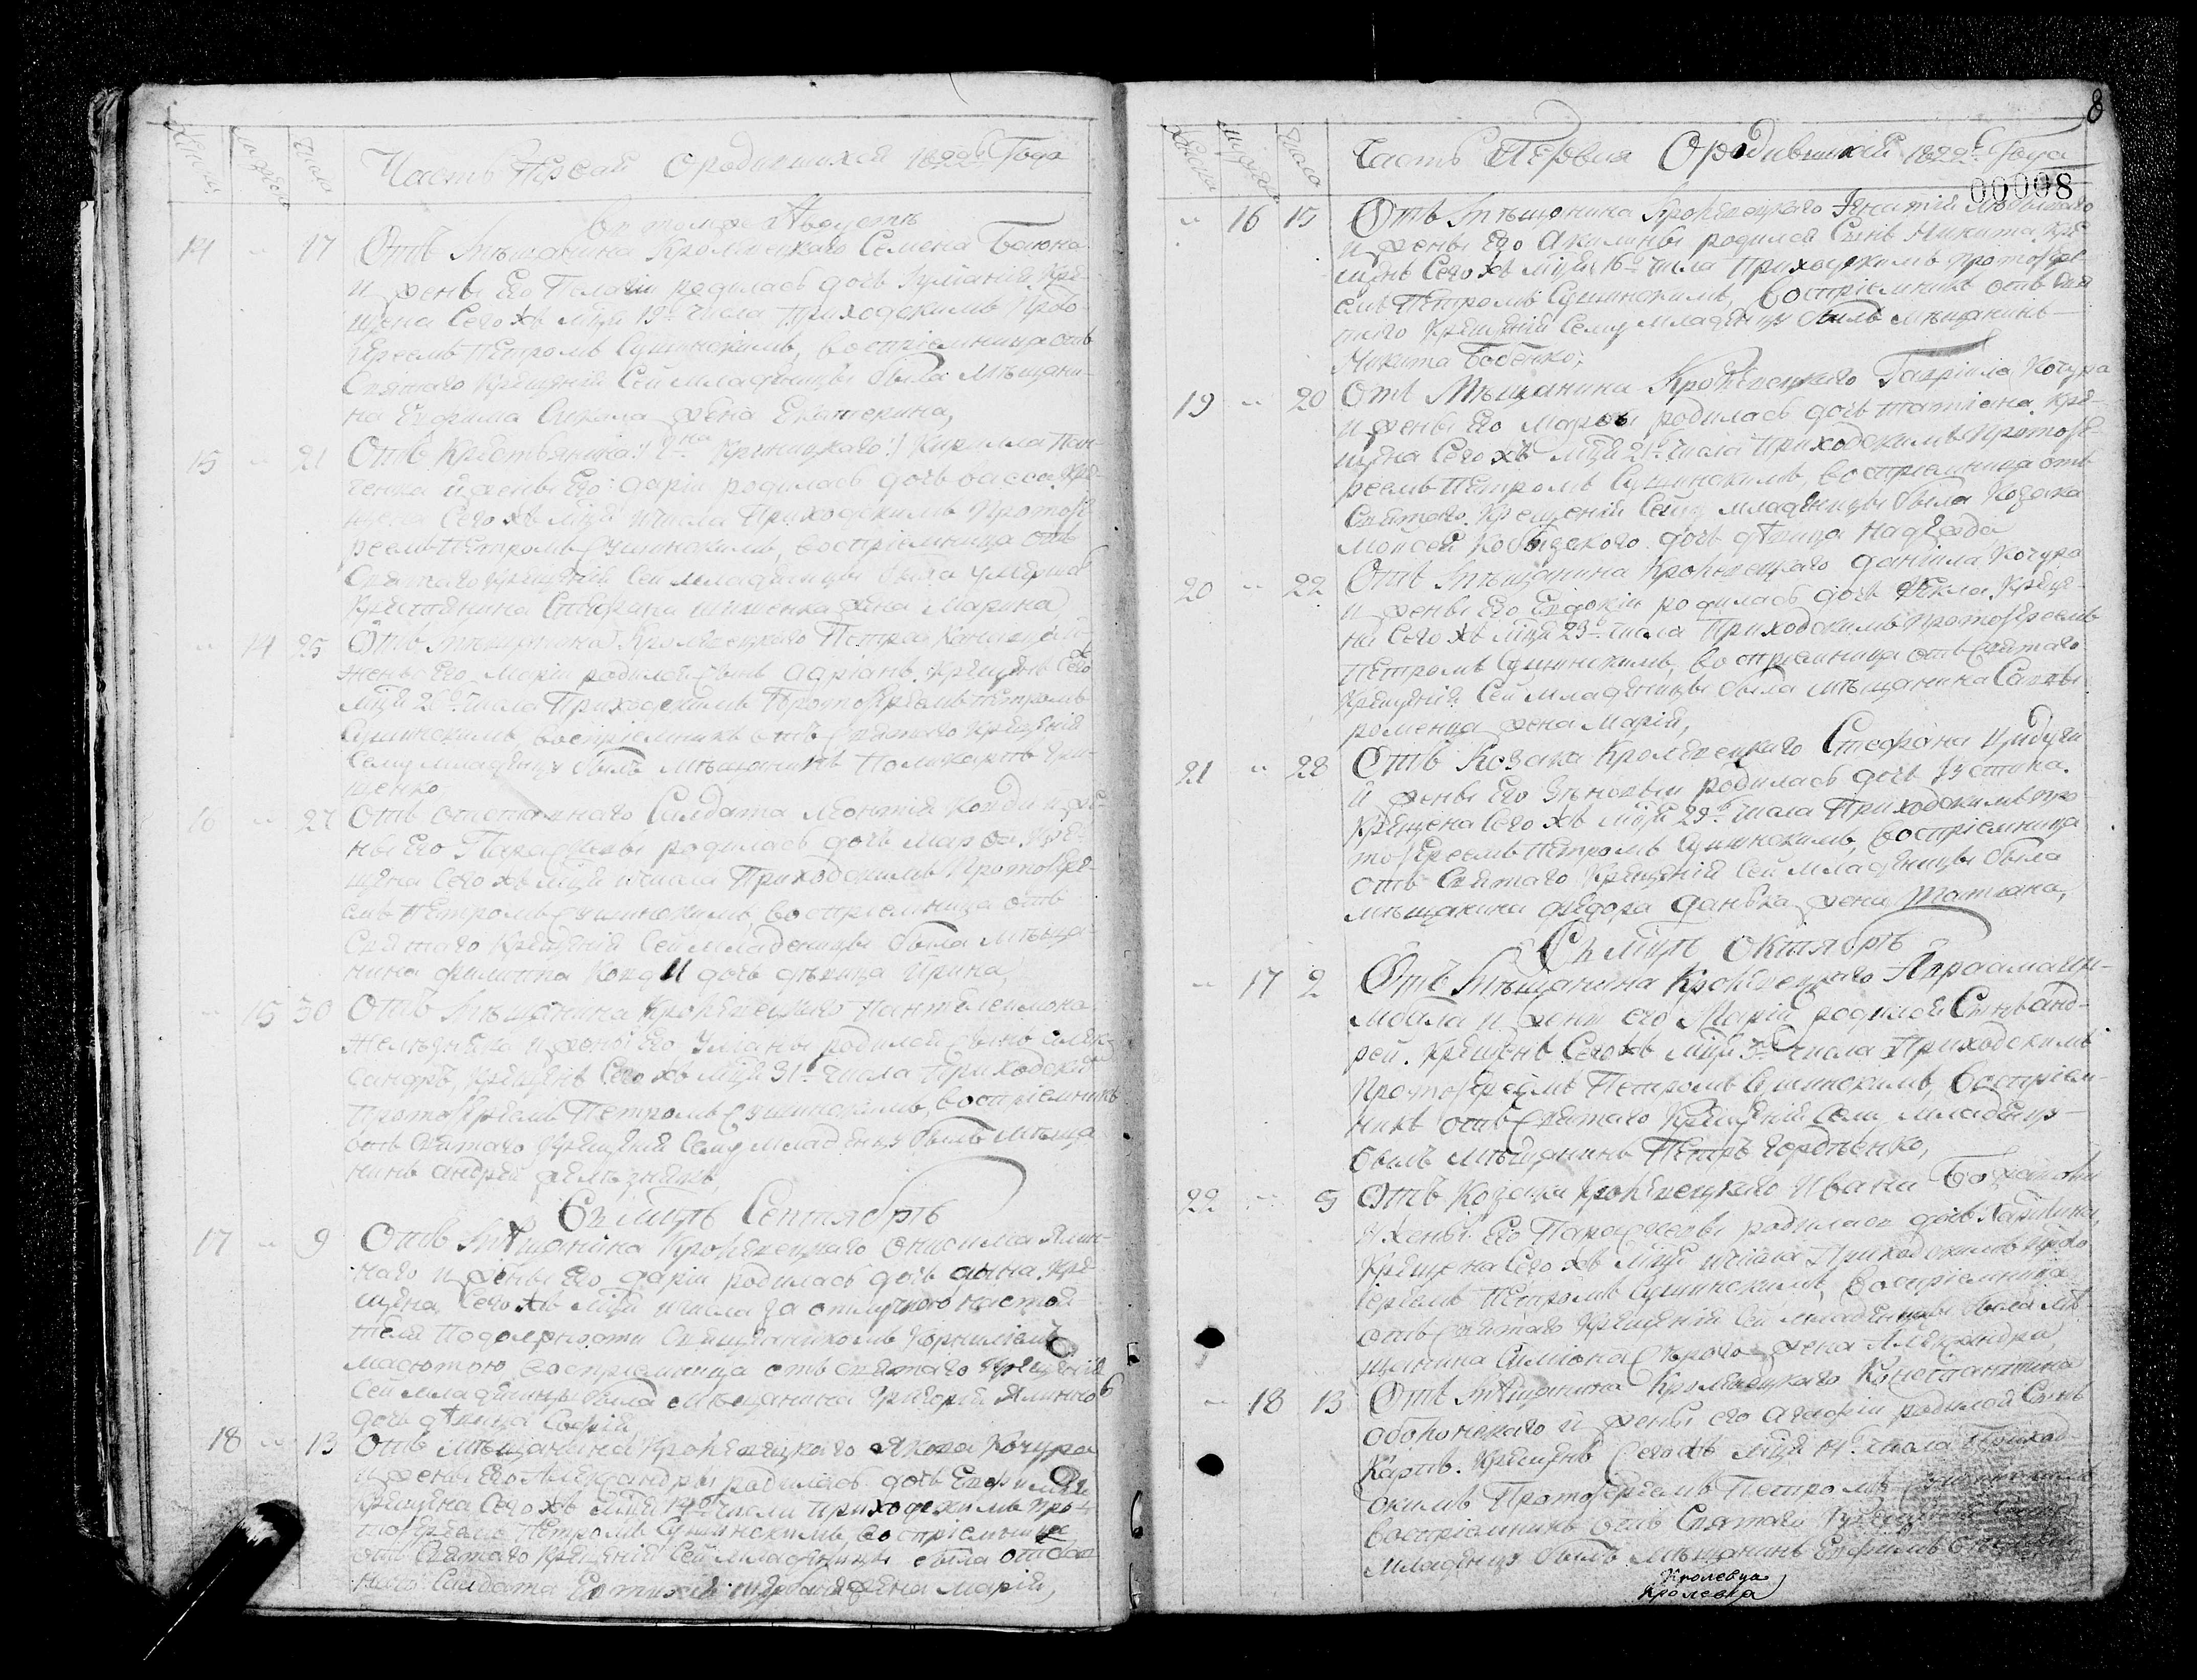 Часть Первая О родившихся 1822го Года
въ томже Августѣ
14 " 17 Отъ Мѣщанина Кролевецкаго Семена Баюна
и жены Его Пелагіи родилась дочь Кре-
щена Сего жъ мца 19го числа Приходскимъ Прото-
Іереемъ Петромъ Сушинскимъ, воспріемница отъ
Святаго Крещенія Сей младеницы была мѣщани-
на Ефима жена Екатерина,
15 " 21 Отъ Крестьянина Криницкаго Кирилла Пан-
ченка и жены Его Даріи родилась дочь васса. Кре-
щена Сего жъ мца и числа Приходскимъ Протоіе-
реемъ Петромъ Сушинскимъ, воспріемница отъ
Святаго Крещенія Сей младеницы была умерша
Крестьянина Стефана Шишенка жена Марина
" 14 25 Отъ мѣщанина Кролевецкаго Петра и
жены Его Маріи родился Сынъ Адріанъ. Крещенъ Сего
мца 26го числа Приходскимъ Протоіереемъ Петромъ
Сушинскимъ, воспріемникъ отъ Святаго Крещенія
Сему младенцу былъ мѣщанинъ Поликарпъ Гри-
щенко
16 " 27 Отъ отставнаго Салдата Леонтія Кожди и же-
ны Его Парасковьи родилась дочь Марфа. Кре-
щена Сего жъ мца и числа Приходскимъ Протоіере-
емъ Петромъ Сушинскимъ, воспріемница отъ
Святаго Крещенія Сей младеницы была мѣща-
нина Филиппа Кожди дочь дѣвица Ирина,
" 15 30 Отъ Мѣщанина Кролевецкаго Пантелеимона
Желѣзняка и жены Его Ульяны родился Сынъ Алек-
сандръ, Крещенъ Сего жъ мца 31го числа Приходски
Протоіереемъ Петромъ Сушинскимъ, воспріемникъ
отъ Святаго Крещенія Сему младенцу былъ мѣща
нинъ Андрей Желѣзнякъ,
Въ мцѣ Сентябрѣ
17 " 9 Отъ Мѣщанина Кролевецкаго Онисима Ялин-
наго и жены Его Даріи родилась дочь Анна. Кре-
щена Сего жъ мца и числа за отлучкою настоя-
теля По должности Священникомъ Корниліемъ
Масютою воспріемница отъ святаго Крещенія
Сей младеницы была мѣщанина Григорія Ялинного
дочь дѣвица Софія
18 " 13 Отъ мѣщанина Кролевецкаго Якова Кочура
и жены Его Александры родилась дочь Евфимія
Крещена Сего жъ мца 14го числа приходскимъ про-
тоіереемъ Петромъ Сушинскимъ воспріемница
отъ Святаго Крещенія Сей младеницы была отстав
наго Салдата жена Марія,
8
00008
Часть Первая О родившихся 1822го Года
" 16 15 Отъ Мѣщанина Кролевецкаго Игнатія
и жены Его Акилины родился Сынъ Никита. Кре-
щенъ Сего жъ мца 16го числа Приходскимъ протоіере-
емъ Петромъ Сушинскимъ, воспріемникъ отъ Свя
таго Крещенія Сему младенцу былъ мѣщанинъ
Никита Бабенко;
19 " 20 Отъ Мѣщанина Кролевецкаго Гавріила Кочура
и жены Его Марфы родилась дочь татіана. Кре-
щена Сего жъ мца 21го числа Приходскимъ Протоіе-
реемъ Петромъ Сушинскимъ, воспріемница отъ
Святаго Крещенія Сей младеницы была Козака
Моисея Кобызского дочь дѣвица Надежда
20 " 22 Отъ Мѣщанина Кролевецкаго Даніила Кочура
и жены Его Евдокіи родилась дочь Фекла. Креще-
на Сего жъ мца 23го числа Приходскимъ Протоіереемъ
Петромъ Сушинскимъ, воспріемница отъ Святаго
Крещенія Сей младеницы была мѣщанина Саввы
роменца жена Марія,
21 " 28 Отъ Козака Кролевецкаго Стефана
и жены Его Зѣновіи родилась дочь Іустина.
Крещена Сего жъ мца 29го числа Приходскимъ про
тоіереемъ Петромъ Сушинскимъ, воспріемница
отъ Святаго Крещенія Сей младеницы была
мѣщанина Федора Данька жена Татіана,
Въ мцѣ Октябрѣ
" 17 2 Отъ Мѣщанина Кролевецкаго Авраама Цы-
мбала и жены его Маріи родился Сынъ Анд-
рей. Крещенъ Сего жъ мца 3го числа Приходскимъ
Протоіереемъ Петромъ Сушинскимъ, воспріем-
никъ отъ Святаго Крещенія Сему младенцу
былъ мѣщанинъ Петръ Гордѣенко,
22 " 5 Отъ Козака Кролевецкаго Ивана
и жены Его Парасковьи родилась дочь Харитина,
Крещена Сего жъ мца и числа Приходскимъ Прото
іереемъ Петромъ Сушинскимъ, воспріемница
отъ Святаго Крещенія Сей младеницы была мѣ-
щанина Симіона жена Александра,
" 18 13 Отъ Мѣщанина Кролевецкаго Константина
Оболонскаго и жены его Агафіи родился Сынъ
Карпъ. Крещенъ Сего жъ мца 14го числа Приход-
скимъ Протоіереемъ Петромъ Сушинскимъ,
воспріемникъ отъ Святаго Крещенія Сему
младенцу былъ мѣщанинъ Ефимъ
Кролевца
Кролевца